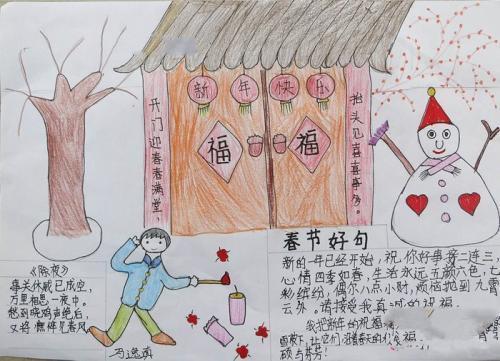 新年快乐
开门迎春春满堂
抬头见喜喜事多
福
福
《除夜》
事关休戚已成空，
万里相思一夜中。
愁到晓鸡声绝后，
又将憔悴见春风
春节好句
新的一年已经开始，祝你好事接二连三，
心情四季如春，生活永远五颜六色，七
彩缤纷，偶尔八点小财，烦恼抛到九霄
云外。请接受我真诚的祝福。
我把新年的祝福
福。